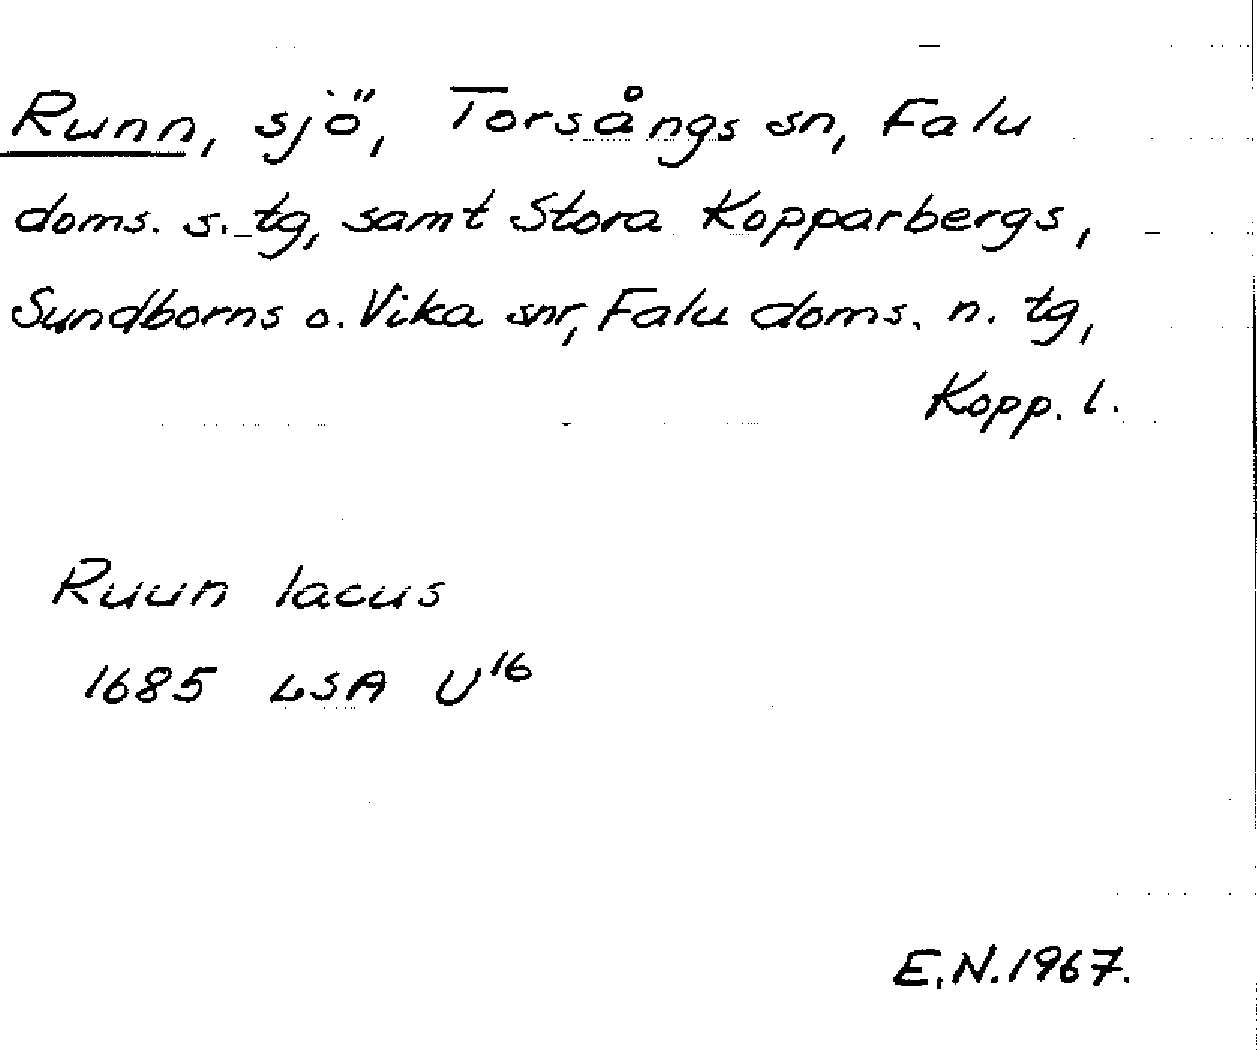 Runn, sjö, Torsångs sn, Falu
doms. s. tg, samt Stora Kopparbergs,
Sundborns o. Vika snr, Falu doms. n. tg,
Kopp. l.
Ruun lacus
1685 LSA U¹⁶
E.N. 1967.